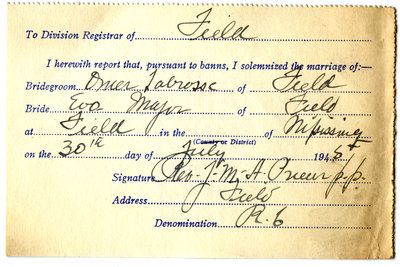 To Division Registrar of Field
I herewith report that, pursuant to banns, I solemnized the marriage of:—
Bridegroom Omer Labrosse of Field
Bride Eva Major of Field
at Field in the of Nipissing
(County or District)
on the 30th day of July 194
Signature Rev. J. M. A. Prieur p.p.
Address Field
Denomination R. C